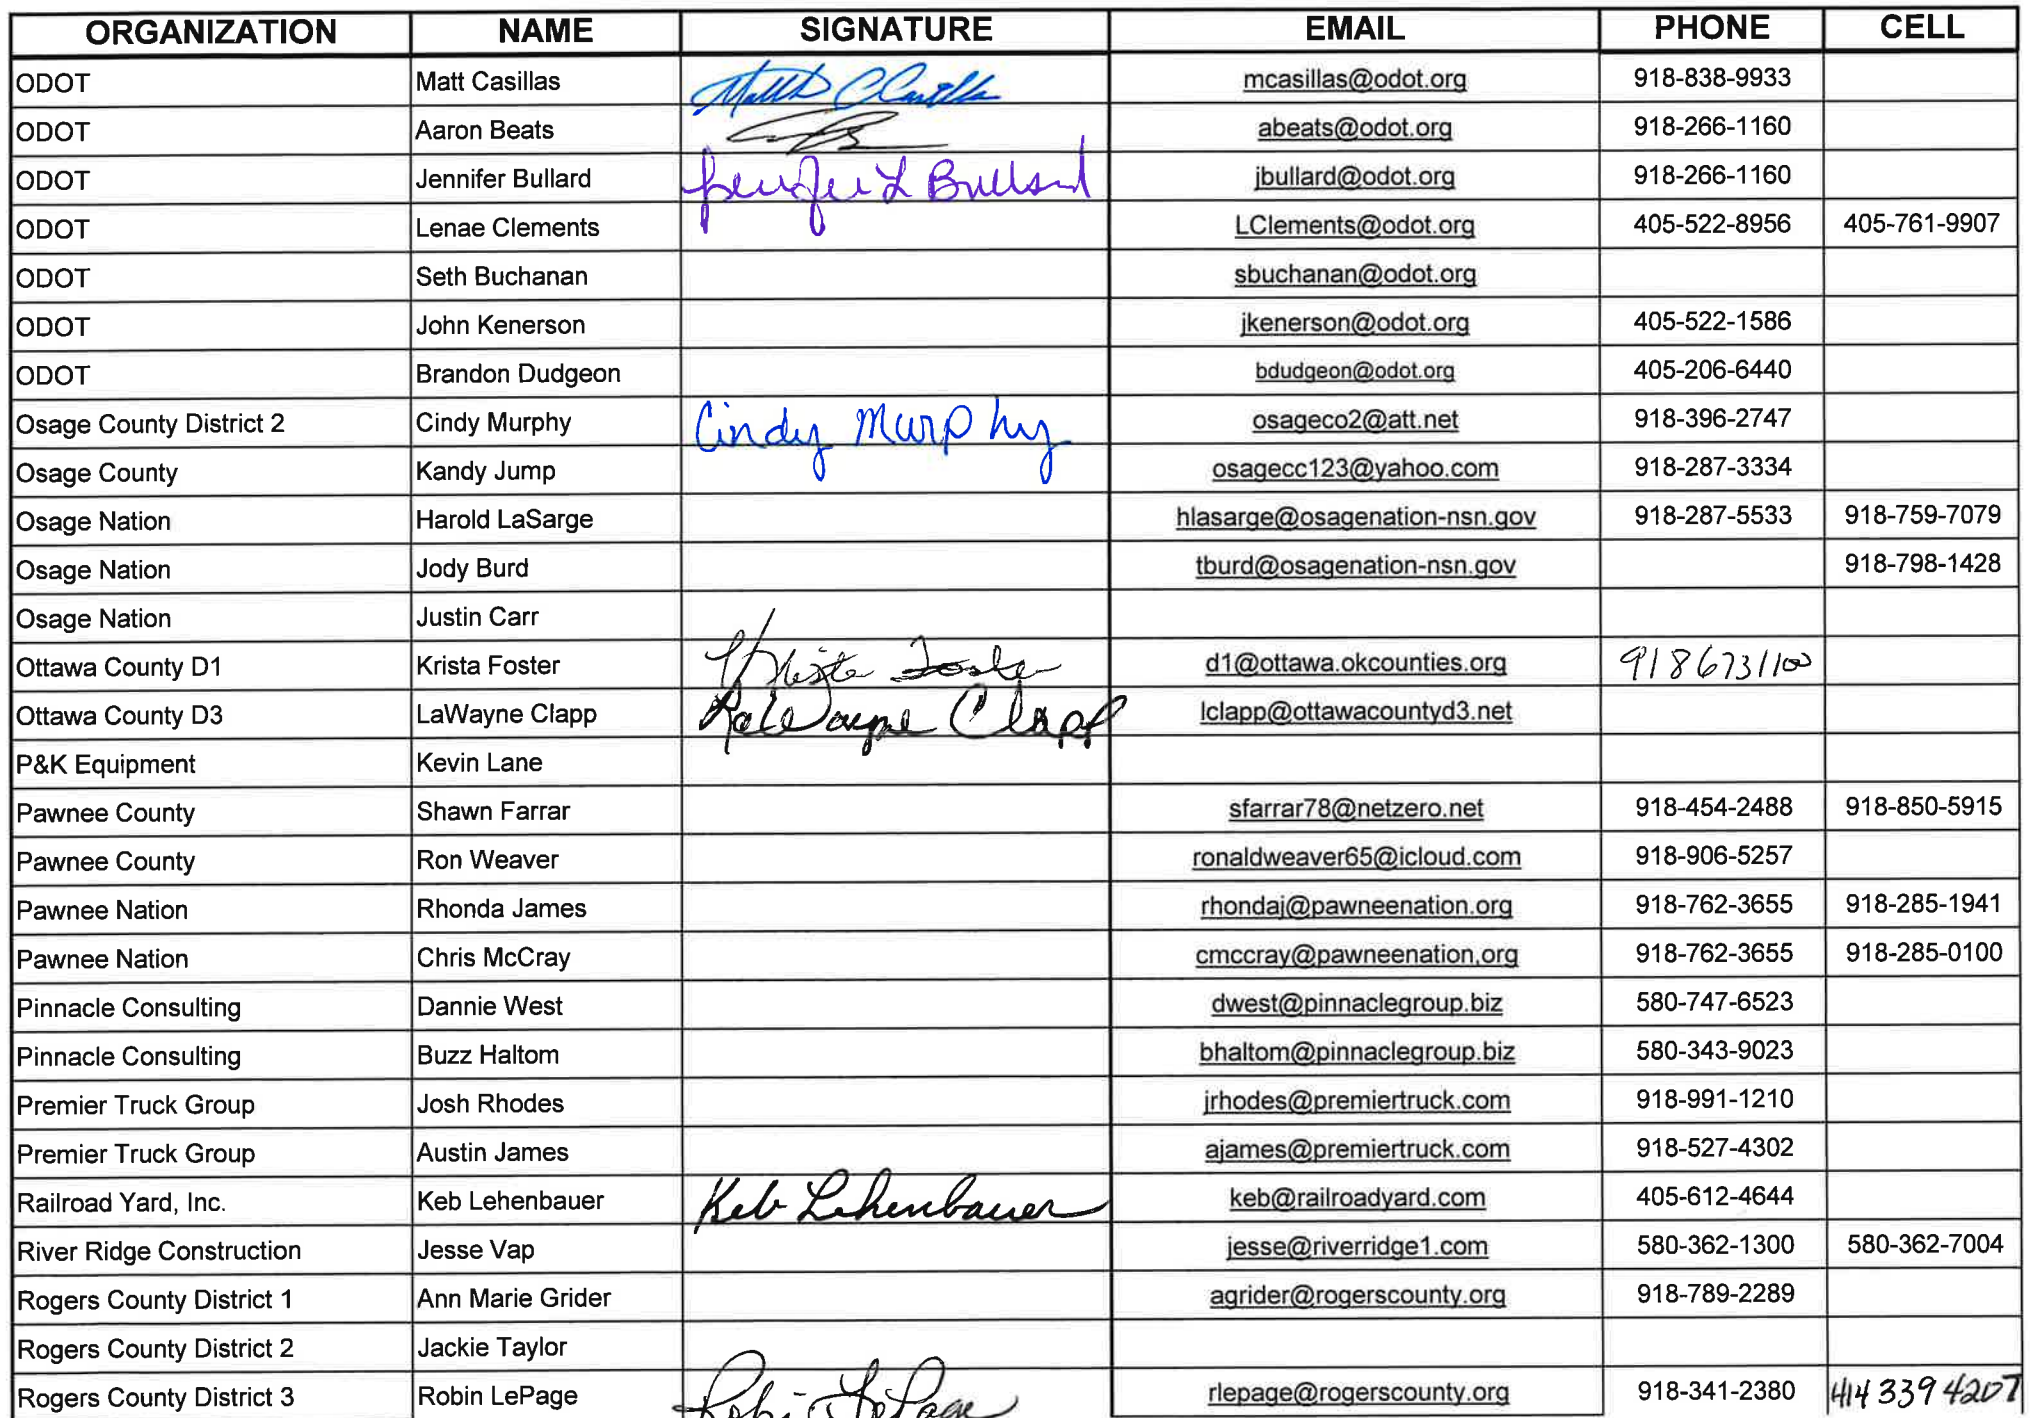 ORGANIZATION NAME SIGNATURE EMAIL PHONE CELL
ODOT Matt Casillas Matth C Casilla mcasillas@odot.org 918-838-9933
ODOT Aaron Beats abeats@odot.org 918-266-1160
ODOT Jennifer Bullard Jennifer L Bullard jbullard@odot.org 918-266-1160
ODOT Lenae Clements LClements@odot.org 405-522-8956 405-761-9907
ODOT Seth Buchanan sbuchanan@odot.org
ODOT John Kenerson jkenerson@odot.org 405-522-1586
ODOT Brandon Dudgeon bdudgeon@odot.org 405-206-6440
Osage County District 2 Cindy Murphy Cindy Murphy osageco2@att.net 918-396-2747
Osage County Kandy Jump osagecc123@yahoo.com 918-287-3334
Osage Nation Harold LaSarge hlasarge@osagenation-nsn.gov 918-287-5533 918-759-7079
Osage Nation Jody Burd tburd@osagenation-nsn.gov 918-798-1428
Osage Nation Justin Carr
Ottawa County D1 Krista Foster Krista Foster d1@ottawa.okcounties.org 9186731100
Ottawa County D3 LaWayne Clapp LaWayne Clapp lclapp@ottawacountyd3.net
P&K Equipment Kevin Lane
Pawnee County Shawn Farrar sfarrar78@netzero.net 918-454-2488 918-850-5915
Pawnee County Ron Weaver ronaldweaver65@icloud.com 918-906-5257
Pawnee Nation Rhonda James rhondaj@pawneenation.org 918-762-3655 918-285-1941
Pawnee Nation Chris McCray cmccray@pawneenation,org 918-762-3655 918-285-0100
Pinnacle Consulting Dannie West dwest@pinnaclegroup.biz 580-747-6523
Pinnacle Consulting Buzz Haltom bhaltom@pinnaclegroup.biz 580-343-9023
Premier Truck Group Josh Rhodes jrhodes@premiertruck.com 918-991-1210
Premier Truck Group Austin James ajames@premiertruck.com 918-527-4302
Railroad Yard, Inc. Keb Lehenbauer Keb Lehenbauer keb@railroadyard.com 405-612-4644
River Ridge Construction Jesse Vap jesse@riverridge1.com 580-362-1300 580-362-7004
Rogers County District 1 Ann Marie Grider agrider@rogerscounty.org 918-789-2289
Rogers County District 2 Jackie Taylor
Rogers County District 3 Robin LePage Robin LePage rlepage@rogerscounty.org 918-341-2380 414 339 4207